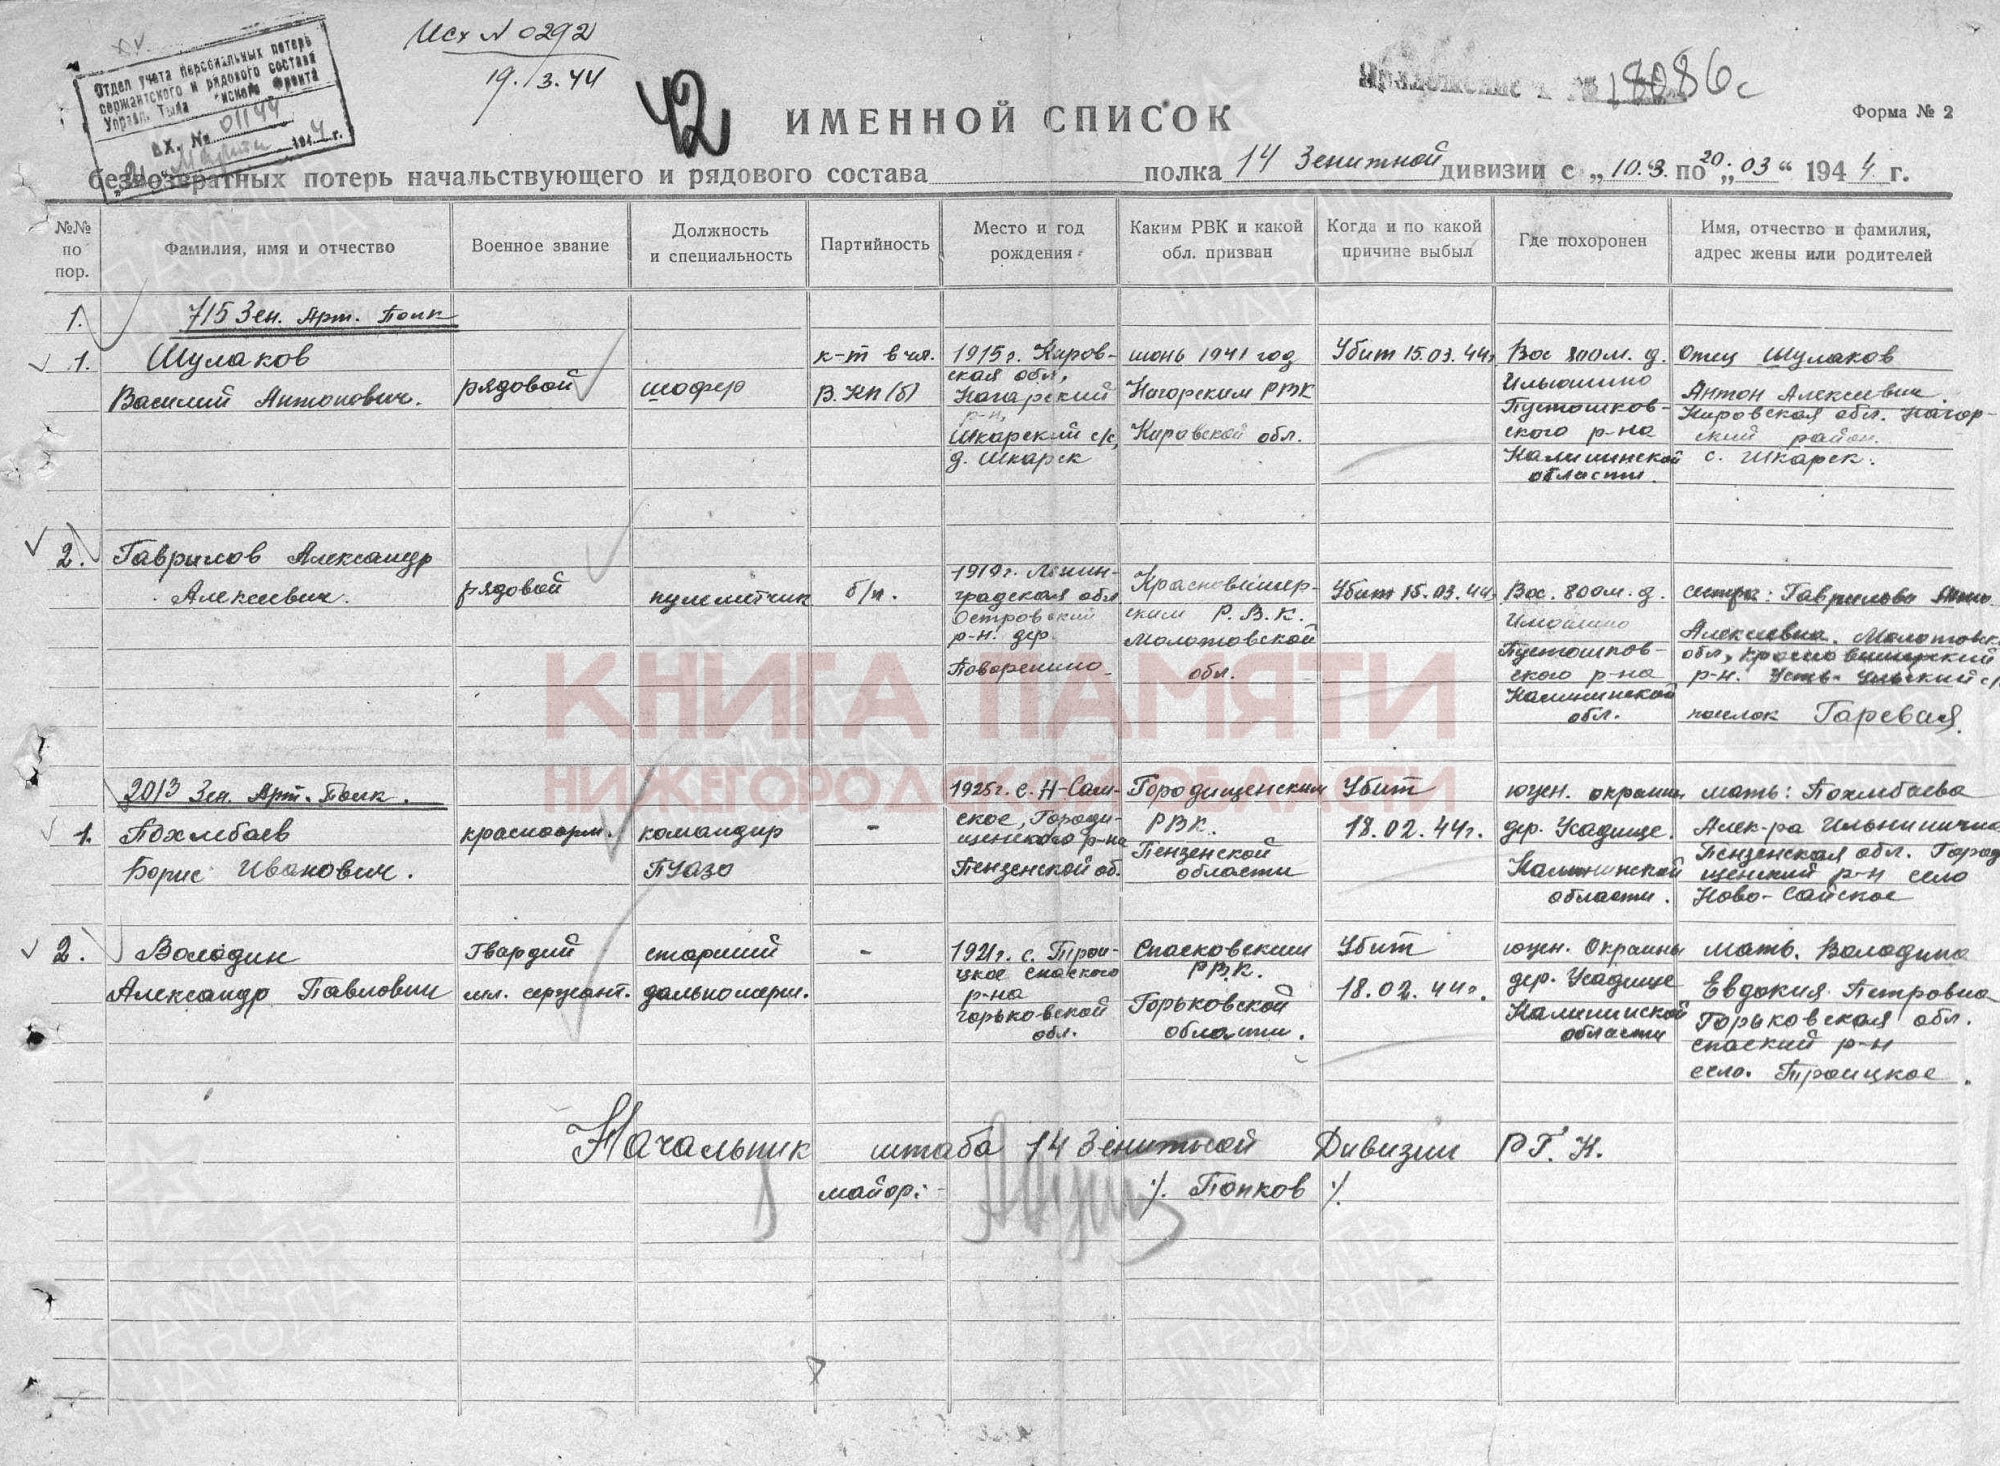 Исх № 0292
19.3.44
Отдел учета персональных потерь
сержантского и рядового состава
Управ. Тыла фронта
ВХ. № 01144
Марта 1944 г.
42
18086с
Форма № 2
ИМЕННОЙ СПИСОК
безвозвратных потерь начальствующего и рядового состава полка 14 Зенитной дивизии с „10.3. по „20.03“ 1944 г.
№№ по пор.
Фамилия, имя и отчество
Военное звание
Должность и специальность
Партийность
Место и год рождения
Каким РВК и какой обл. призван
Когда и по какой причине выбыл
Где похоронен
Имя, отчество и фамилия, адрес жены или родителей
1. 715 Зен. Арт. Полк
1. Шулаков
Василий Антонович.
рядовой
шофер
к-т в чл.
В.КП(б)
1915г. Киров-
ская обл,
Нагорский
р-н,
Шкарский с/с,
д. Шкарск
июнь 1941 год
Нагорским РВК
Кировской обл.
Убит 15.03.44г
Вос 800м. д.
Ильюшино
Пустошков-
ского р-на
Калининской
области.
Отец Шулаков
Антон Алексеевич.
Кировская обл. Нагор-
ский район.
с. Шкарск.
2. Гаврилов Александр
Алексеевич.
рядовой
пулеметчик
б/п.
1919г. Ленин-
градская обл
Островский
р-н. дер.
Поворенино
Красновишер-
ским Р.В.К.
Молотовской
обл.
Убит 15.03.44
Вос. 800м. д.
Пустошков-
ского р-на
Калининской
обл.
сестра: Гаврилова
Алексеевна. Молотовск.
обл, Красновишерский
р-н. Усть-Ульский с/с
поселок Гаревая.
2013 Зен. Арт. Полк.
1. Похлебаев
Борис Иванович.
красноарм.
командир
ПУАЗО
-
1925г. с. Н-Сам-
ское, Городи-
щенского р-на
Пензенской об.
Городищенским
РВК.
Пензенской
области
Убит
18.02.44г.
южн. окраина
дер. Усадище.
Калининской
области.
мать: Похлебаева
Алек-ра Ильинична
Пензенская обл. Город
щенский р-н село
Ново-Сайское
2. Володин
Александр Павлович
Гвардий
мл. сержант.
старший
дальномерщ.
-
1921г. с. Трои-
цкое спаского
р-на
горьковской
обл.
Спасковским
РВК.
Горьковской
области.
Убит
18.02.44г.
южн. Окраины
дер. Усадище
Калининской
области
мать. Володина
Евдокия Петровна
Горьковская обл.
спаский р-н
село. Троицкое.
Начальник штаба 14 Зенитной Дивизии РГК.
майор:- /. Попков /.
КНИГА ПАМЯТИ
НИЖЕГОРОДСКОЙ ОБЛАСТИ
ПАМЯТЬ
НАРОДА